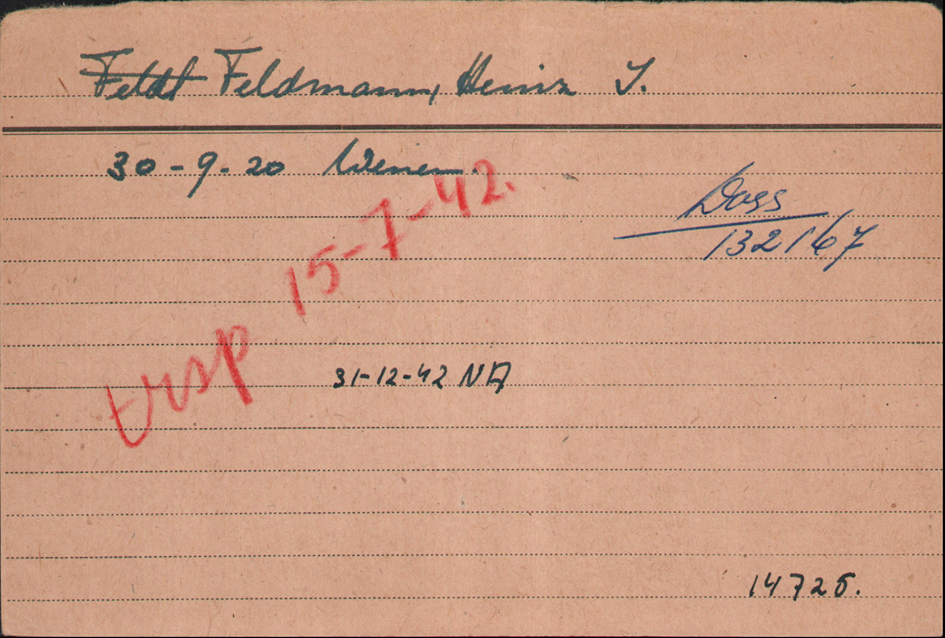 Feldt Feldmann, Heinz I.
30-9-20 Wenen.
Doss
132167
trsp 15-7-42.
31-12-42 NA
14726.